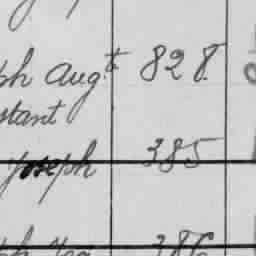 ph Augt 828
stant
Joseph 385
386